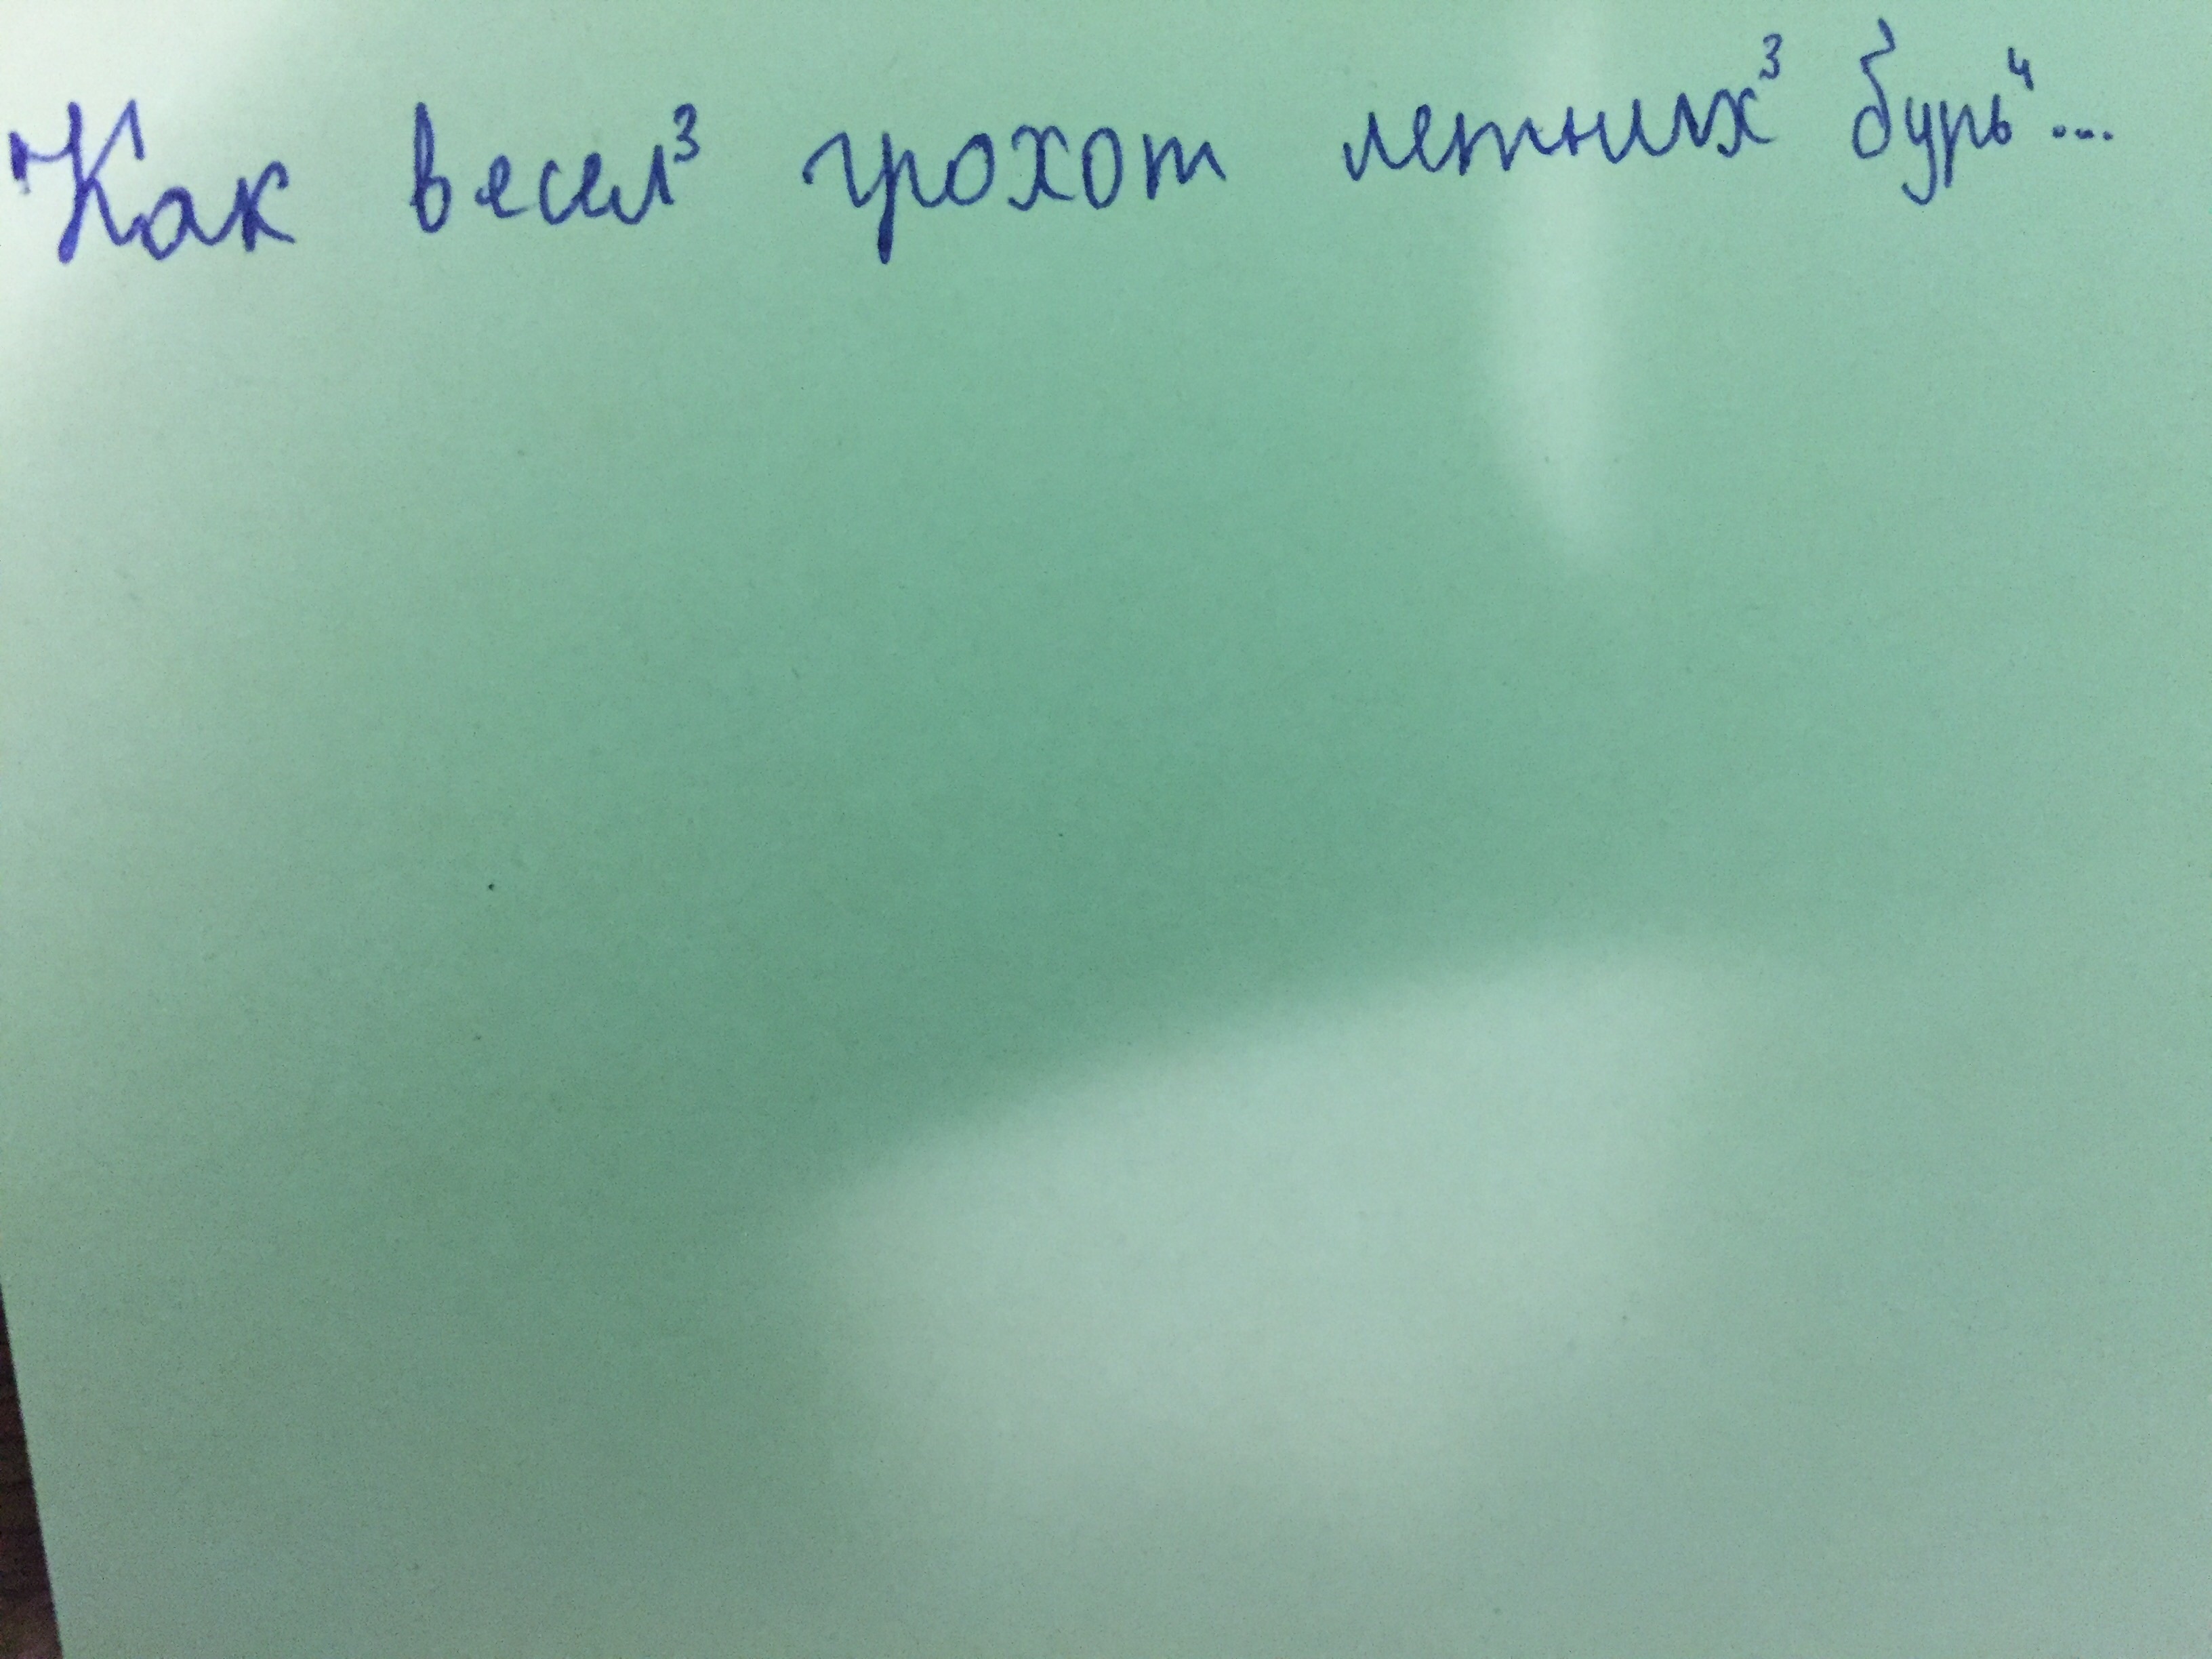 "Как весел³ грохот летних³ бурь⁴...